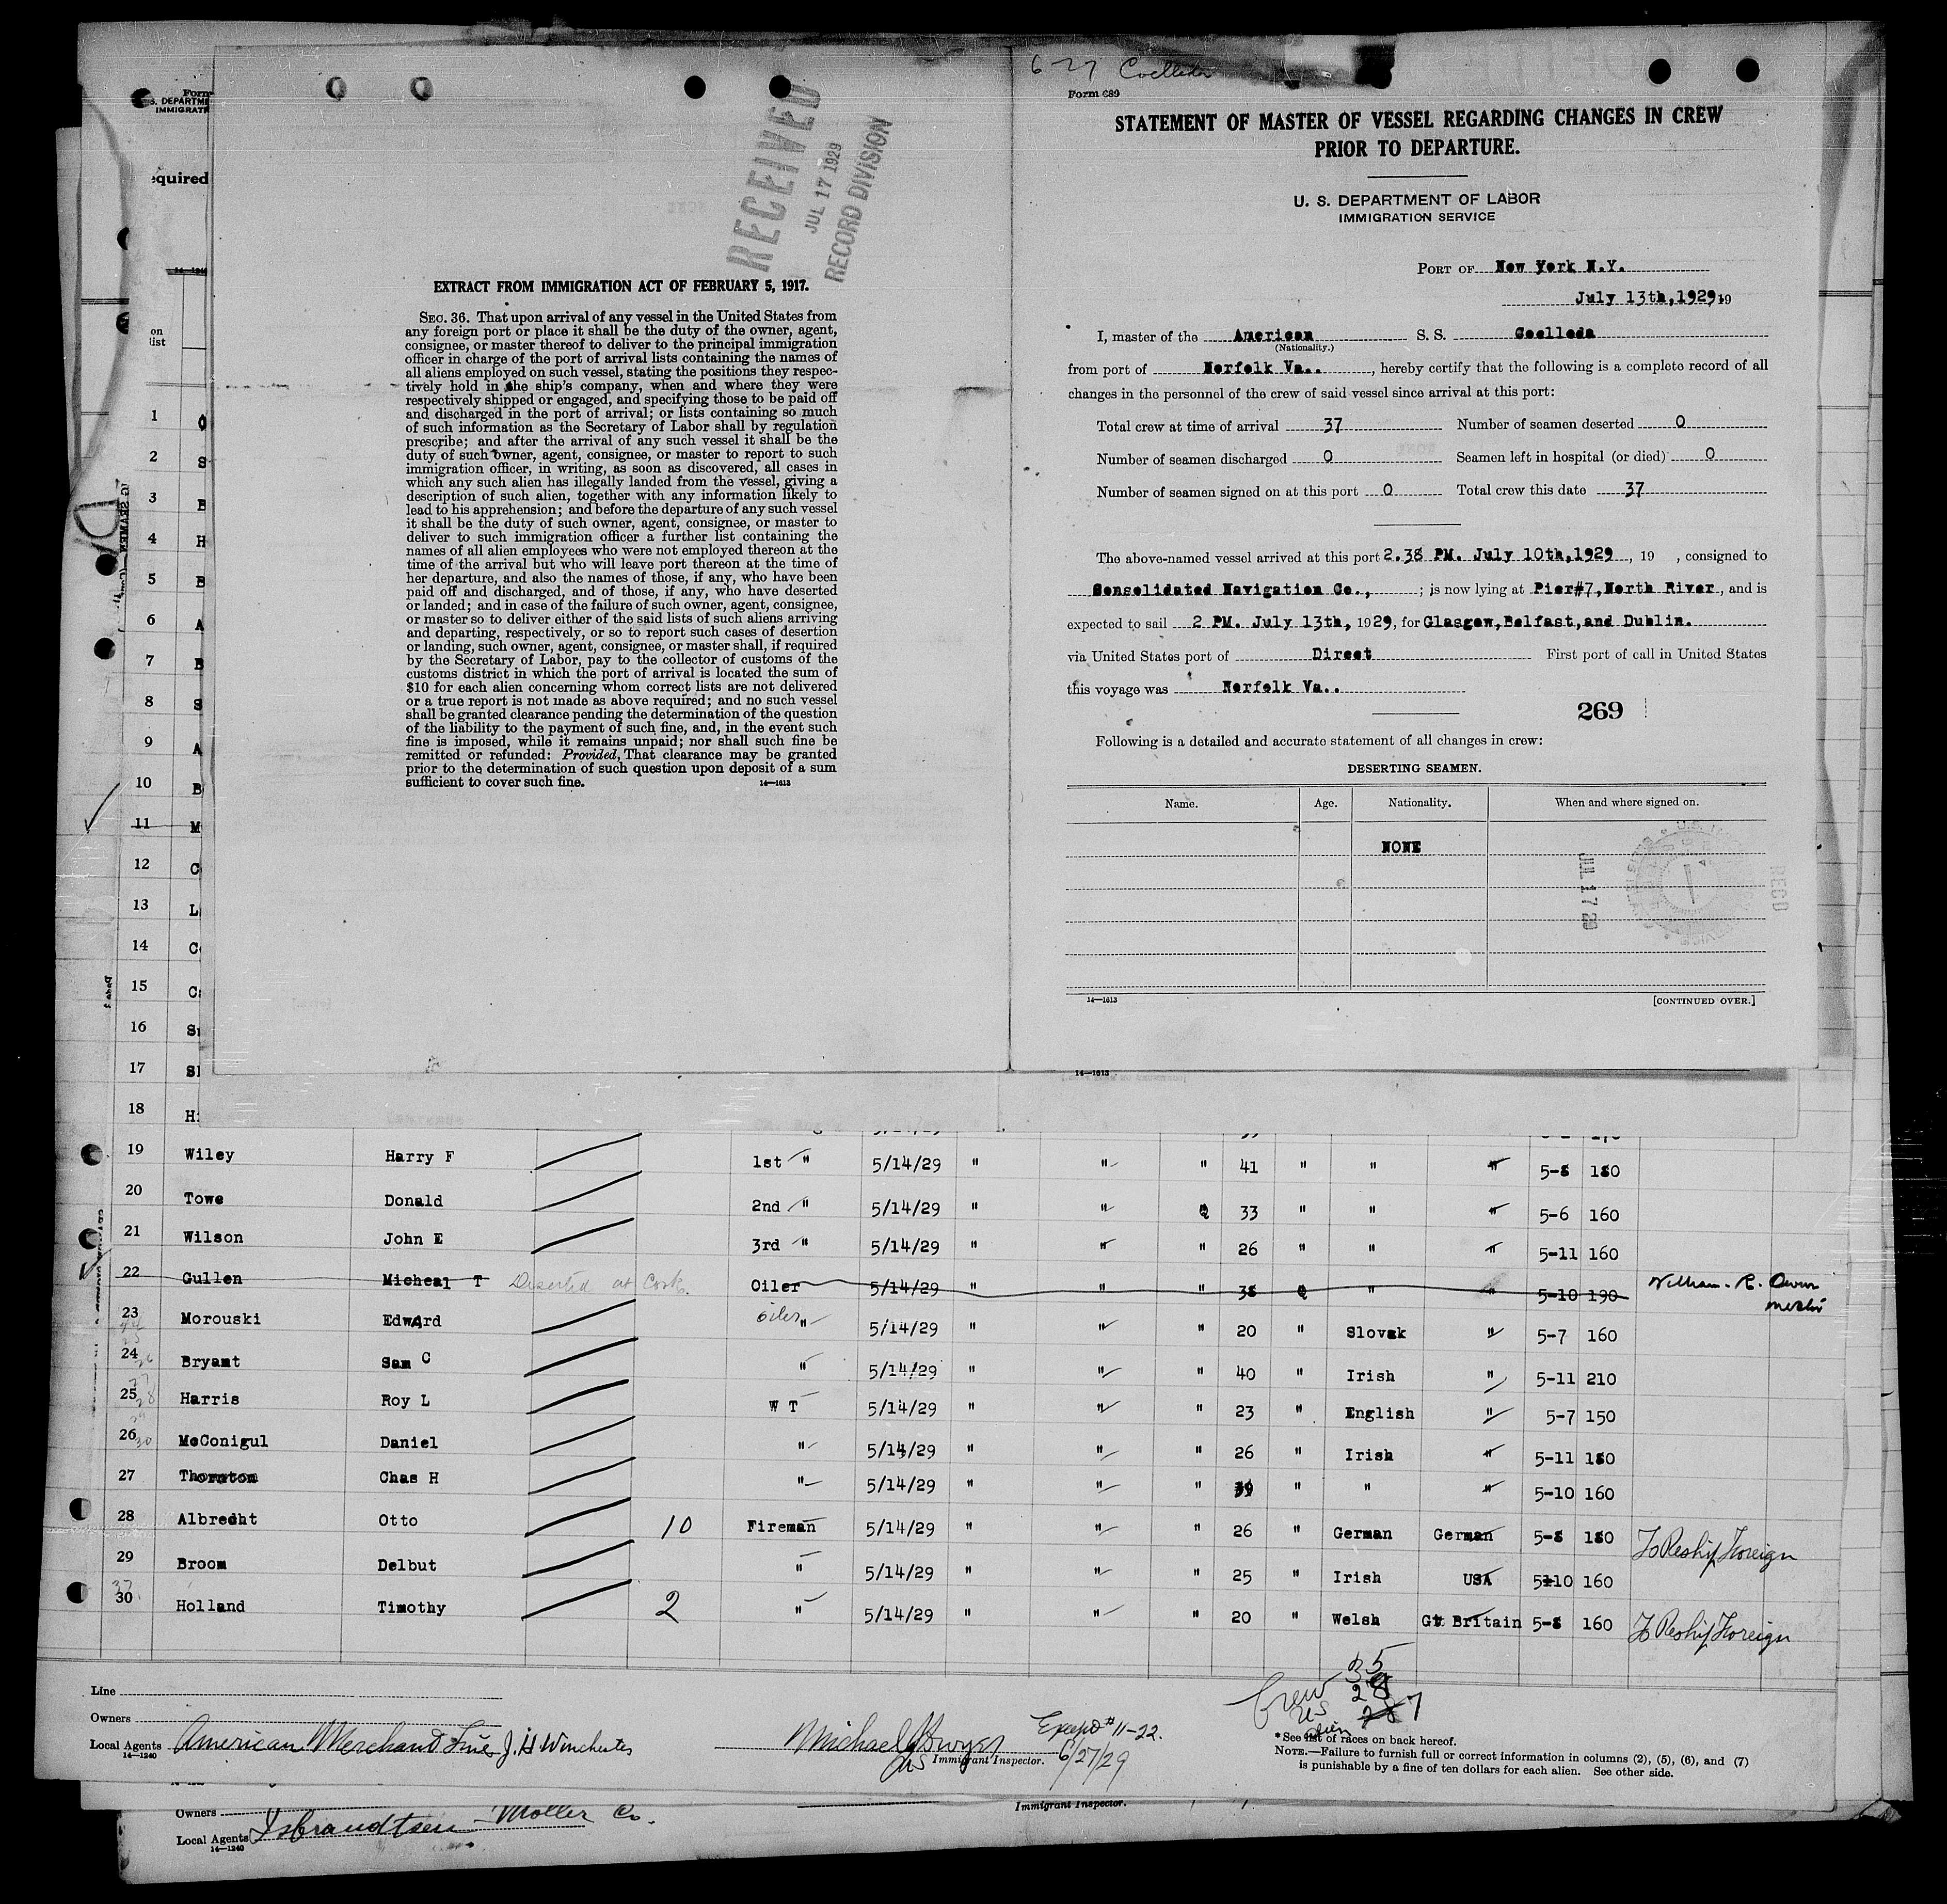 Form
S. DEPARTME
IMMIGRAT
equired
on
list
RECEIVED
JUL 17 1929
RECORD DIVISION
EXTRACT FROM IMMIGRATION ACT OF FEBRUARY 5, 1917.
SEC. 36. That upon arrival of any vessel in the United States from
any foreign port or place it shall be the duty of the owner, agent,
consignee, or master thereof to deliver to the principal immigration
officer in charge of the port of arrival lists containing the names of
all aliens employed on such vessel, stating the positions they respec-
tively hold in the ship's company, when and where they were
respectively shipped or engaged, and specifying those to be paid off
and discharged in the port of arrival; or lists containing so much
of such information as the Secretary of Labor shall by regulation
prescribe; and after the arrival of any such vessel it shall be the
duty of such owner, agent, consignee, or master to report to such
immigration officer, in writing, as soon as discovered, all cases in
which any such alien has illegally landed from the vessel, giving a
description of such alien, together with any information likely to
lead to his apprehension; and before the departure of any such vessel
it shall be the duty of such owner, agent, consignee, or master to
deliver to such immigration officer a further list containing the
names of all alien employees who were not employed thereon at the
time of the arrival but who will leave port thereon at the time of
her departure, and also the names of those, if any, who have been
paid off and discharged, and of those, if any, who have deserted
or landed; and in case of the failure of such owner, agent, consignee,
or master so to deliver either of the said lists of such aliens arriving
and departing, respectively, or so to report such cases of desertion
or landing, such owner, agent, consignee, or master shall, if required
by the Secretary of Labor, pay to the collector of customs of the
customs district in which the port of arrival is located the sum of
$10 for each alien concerning whom correct lists are not delivered
or a true report is not made as above required; and no such vessel
shall be granted clearance pending the determination of the question
of the liability to the payment of such fine, and, in the event such
fine is imposed, while it remains unpaid; nor shall such fine be
remitted or refunded: Provided, That clearance may be granted
prior to the determination of such question upon deposit of a sum
sufficient to cover such fine. 14—1613
6-27
Form 689
STATEMENT OF MASTER OF VESSEL REGARDING CHANGES IN CREW
PRIOR TO DEPARTURE.
U. S. DEPARTMENT OF LABOR
IMMIGRATION SERVICE
PORT OF New York N.Y.
July 13th,1929, 19
I, master of the American S. S. Coelleda
(Nationality.)
from port of Norfolk Va.. , hereby certify that the following is a complete record of all
changes in the personnel of the crew of said vessel since arrival at this port:
Total crew at time of arrival 37 Number of seamen deserted 0
Number of seamen discharged 0 Seamen left in hospital (or died) 0
Number of seamen signed on at this port 0 Total crew this date 37
The above-named vessel arrived at this port 2.38 PM. July 10th,1929 , 19 , consigned to
Consolidated Navigation Co., ; is now lying at Pier#7,North River , and is
expected to sail 2 PM. July 13th, 1929, for Glasgow,Belfast,and Dublin.
via United States port of Direct First port of call in United States
this voyage was Norfolk Va..
269
Following is a detailed and accurate statement of all changes in crew:
DESERTING SEAMEN.
Name. Age. Nationality. When and where signed on.
NONE
JUL 17 29
RECD
14—1613 [CONTINUED OVER.]
14—1613
1
2 S
3 B
4 H
5 B
6 A
7 B
8 S
9 A
10 B
11 M
12 C
13 L
14 C
15 C
16 S
17 S
18 H
19 Wiley Harry F 1st " 5/14/29 " " " 41 " " " 5-8 180
20 Towe Donald 2nd " 5/14/29 " " " 33 " " " 5-6 160
21 Wilson John E 3rd " 5/14/29 " " " 26 " " " 5-11 160
22 Gullen Micheal T Deserted at Cork. Oiler 5/14/29 " " " 38 " " " 5-10 190 William. R. Owen
23 Morouski Edward oiler " 5/14/29 " " " 20 " Slovak " 5-7 160
24 Bryant Sam C " 5/14/29 " " " 40 " Irish " 5-11 210
25 Harris Roy L W T 5/14/29 " " " 23 " English " 5-7 150
26 McConigul Daniel " 5/14/29 " " " 26 " Irish " 5-11 180
27 Thornton Chas H " 5/14/29 " " " 39 " " " 5-10 160
28 Albredht Otto 10 Fireman 5/14/29 " " " 26 " German German 5-8 180 To Reship Foreign
29 Broom Delbut " 5/14/29 " " " 25 " Irish USA 5-10 160
30 Holland Timothy 2 " 5/14/29 " " " 20 " Welsh Gt Britain 5-8 160 To Reship Foreign
Line
Owners
Local Agents American Merchant Line J. H Winchester
14—1240
Michael Dwyer
Immigrant Inspector.
Except #11-22.
6/27/29
Crew 35
US 28
alien 7
*See list of races on back hereof.
NOTE.—Failure to furnish full or correct information in columns (2), (5), (6), and (7)
is punishable by a fine of ten dollars for each alien. See other side.
Owners
Local Agents Isbrandtsen Moller Co.
14—1240
Immigrant Inspector.